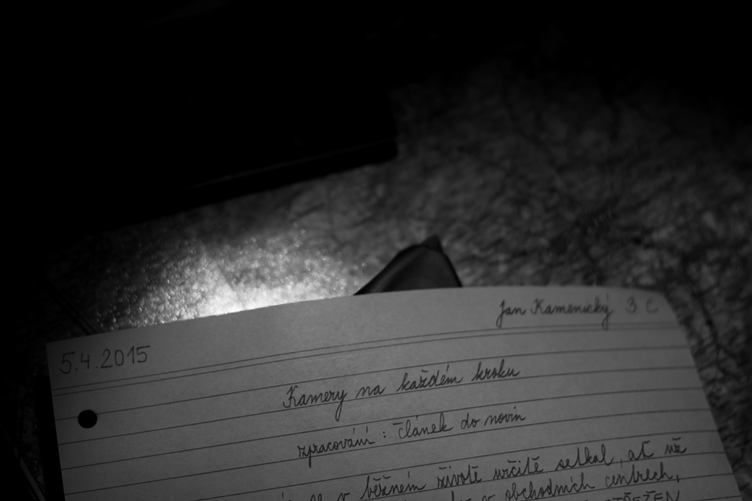 Jan Kamenický 3 C
5.4.2015
Kamery na každém kroku
zpracování : článek do novin
v běžném životě určitě setkal, ať už
v obchodních centrech,
STŘEŽEN